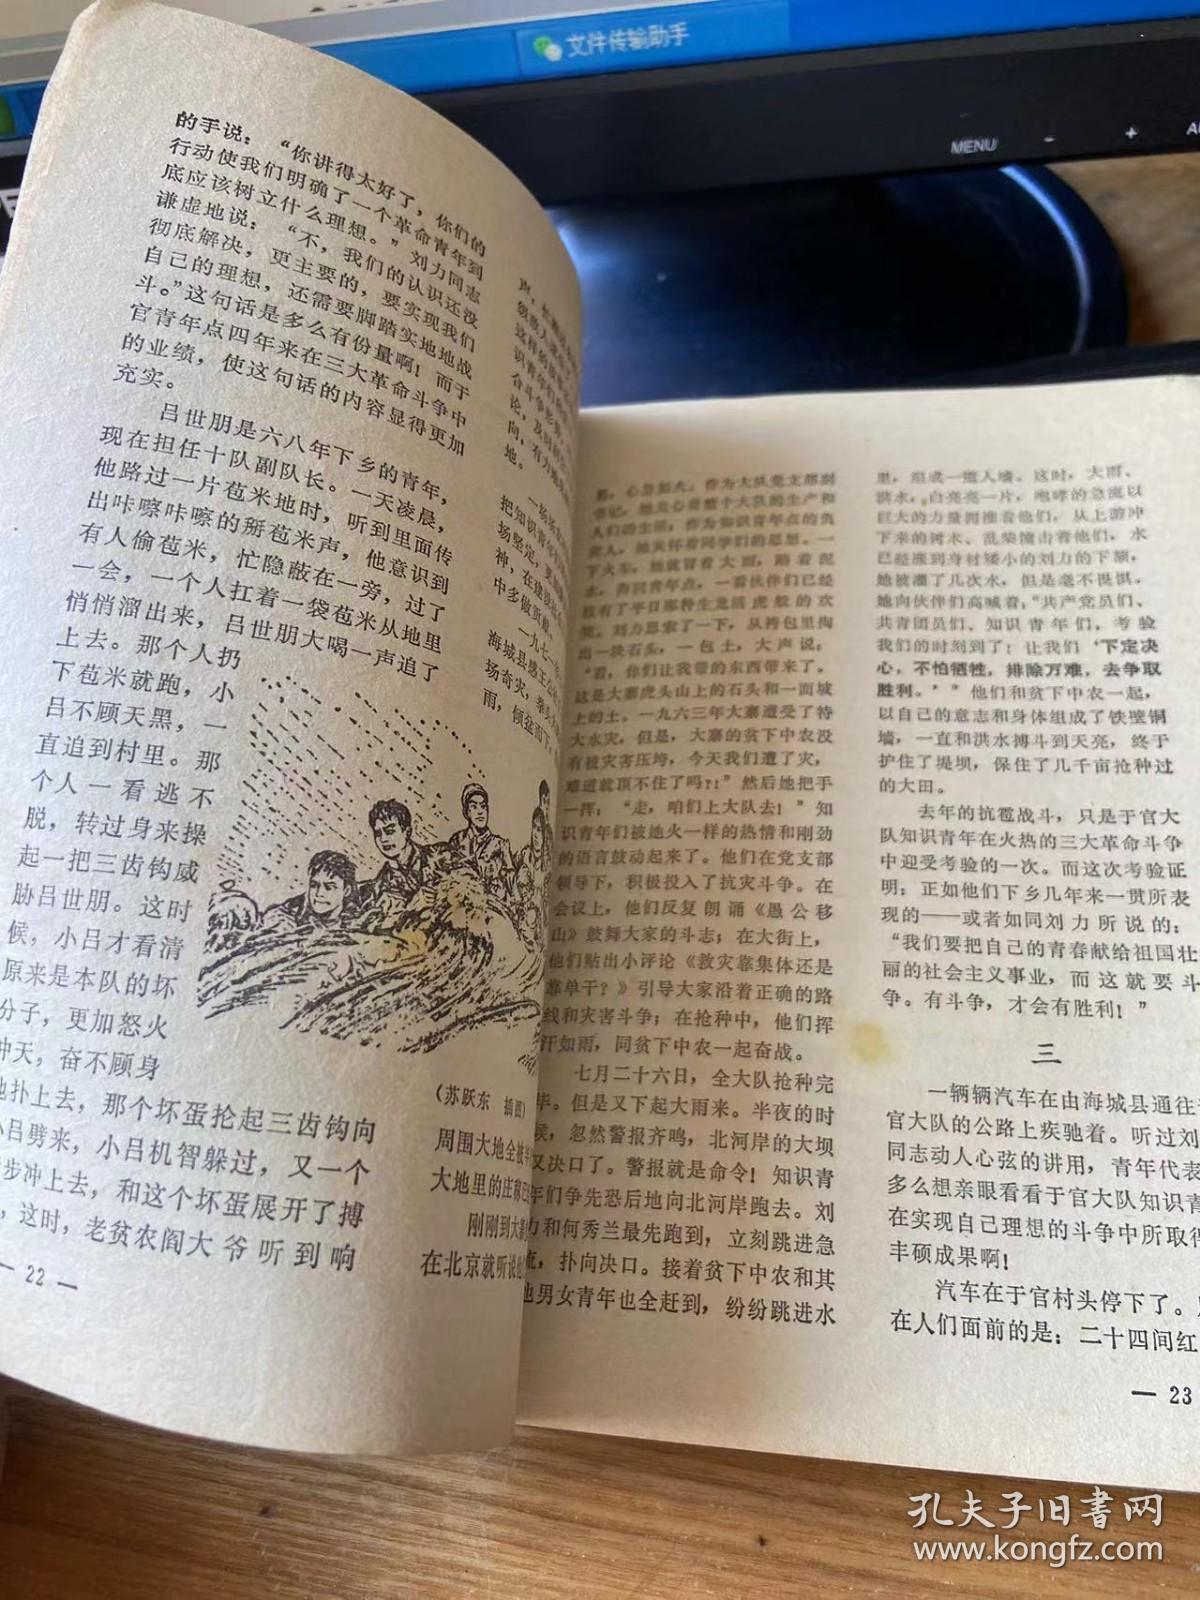 文件传输助手
MENU
-
+
的手说：“你讲得太好了，你们的
行动使我们明确了一个革命青年到
底应该树立什么理想。”刘力同志
谦虚地说：“不，我们的认识还没
彻底解决，更主要的，要实现我们
自己的理想，还需要脚踏实地地战
斗。”这句话是多么有份量啊！而于
官青年点四年来在三大革命斗争中
的业绩，使这句话的内容显得更加
充实。
吕世朋是六八年下乡的青年，
现在担任十队副队长。一天凌晨，
他路过一片苞米地时，听到里面传
出咔嚓咔嚓的掰苞米声，他意识到
有人偷苞米，忙隐蔽在一旁，过了
一会，一个人扛着一袋苞米从地里
悄悄溜出来，吕世朋大喝一声追了
上去。那个人扔
下苞米就跑，小
吕不顾天黑，一
直追到村里。那
个人一看逃不
脱，转过身来操
起一把三齿钩威
胁吕世朋。这时
候，小吕才看清
原来是本队的坏
分子，更加怒火
冲天，奋不顾身
地扑上去，那个坏蛋抡起三齿钩向
小吕劈来，小吕机智躲过，又一个
步冲上去，和这个坏蛋展开了搏
，这时，老贫农阎大爷听到响
— 22 —
地。
把知识青年
场坚定，
神，在建设
中多做贡献。
一九七一
海城县感王公
场奇灾，拳头大
雨，倾盆而下。
（苏跃东 插图）
周围大地全被
大地里的庄稼
刚刚到大寨
在北京就听说
，心急如火。作为大队党支部副
书记，她关心着整个大队的生产和
人们的生活；作为知识青年点的负
责人，她关怀着同学们的思想。一
下火车，她就冒着大雨，踏着泥
水，奔回青年点，一看伙伴们已经
没有了平日那种生龙活虎般的欢
笑。刘力思索了一下，从挎包里掏
出一块石头，一包土，大声说：
“看，你们让我带的东西带来了。
这是大寨虎头山上的石头和一面坡
上的土。一九六三年大寨遭受了特
大水灾，但是，大寨的贫下中农没
有被灾害压垮，今天我们遭了灾，
难道就顶不住了吗？！”然后她把手
一挥：“走，咱们上大队去！”知
识青年们被她火一样的热情和刚劲
的语言鼓动起来了。他们在党支部
领导下，积极投入了抗灾斗争。在
会议上，他们反复朗诵《愚公移
山》鼓舞大家的斗志；在大街上，
他们贴出小评论《救灾靠集体还是
靠单干？》引导大家沿着正确的路
线和灾害斗争；在抢种中，他们挥
汗如雨，同贫下中农一起奋战。
七月二十六日，全大队抢种完
毕。但是又下起大雨来。半夜的时
候，忽然警报齐鸣，北河岸的大坝
又决口了。警报就是命令！知识青
年们争先恐后地向北河岸跑去。刘
力和何秀兰最先跑到，立刻跳进急
流，扑向决口。接着贫下中农和其
他男女青年也全赶到，纷纷跳进水
里，组成一道人墙。这时，大雨、
洪水，白亮亮一片，咆哮的急流以
巨大的力量拥推着他们，从上游冲
下来的树木、乱柴撞击着他们，水
已经涨到身材矮小的刘力的下颏，
她被灌了几次水，但是毫不畏惧。
她向伙伴们高喊着：“共产党员们、
共青团员们、知识青年们，考验
我们的时刻到了！让我们‘下定决
心，不怕牺牲，排除万难，去争取
胜利。’”他们和贫下中农一起，
以自己的意志和身体组成了铁壁铜
墙，一直和洪水搏斗到天亮，终于
护住了堤坝，保住了几千亩抢种过
的大田。
去年的抗雹战斗，只是于官大
队知识青年在火热的三大革命斗争
中迎受考验的一次。而这次考验证
明：正如他们下乡几年来一贯所表
现的——或者如同刘力所说的：
“我们要把自己的青春献给祖国壮
丽的社会主义事业，而这就要斗
争。有斗争，才会有胜利！”
三
一辆辆汽车在由海城县通往
官大队的公路上疾驰着。听过刘
同志动人心弦的讲用，青年代表
多么想亲眼看看于官大队知识青
在实现自己理想的斗争中所取得
丰硕成果啊！
汽车在于官村头停下了。
在人们面前的是：二十四间红
— 23
孔夫子旧书网
www.kongfz.com